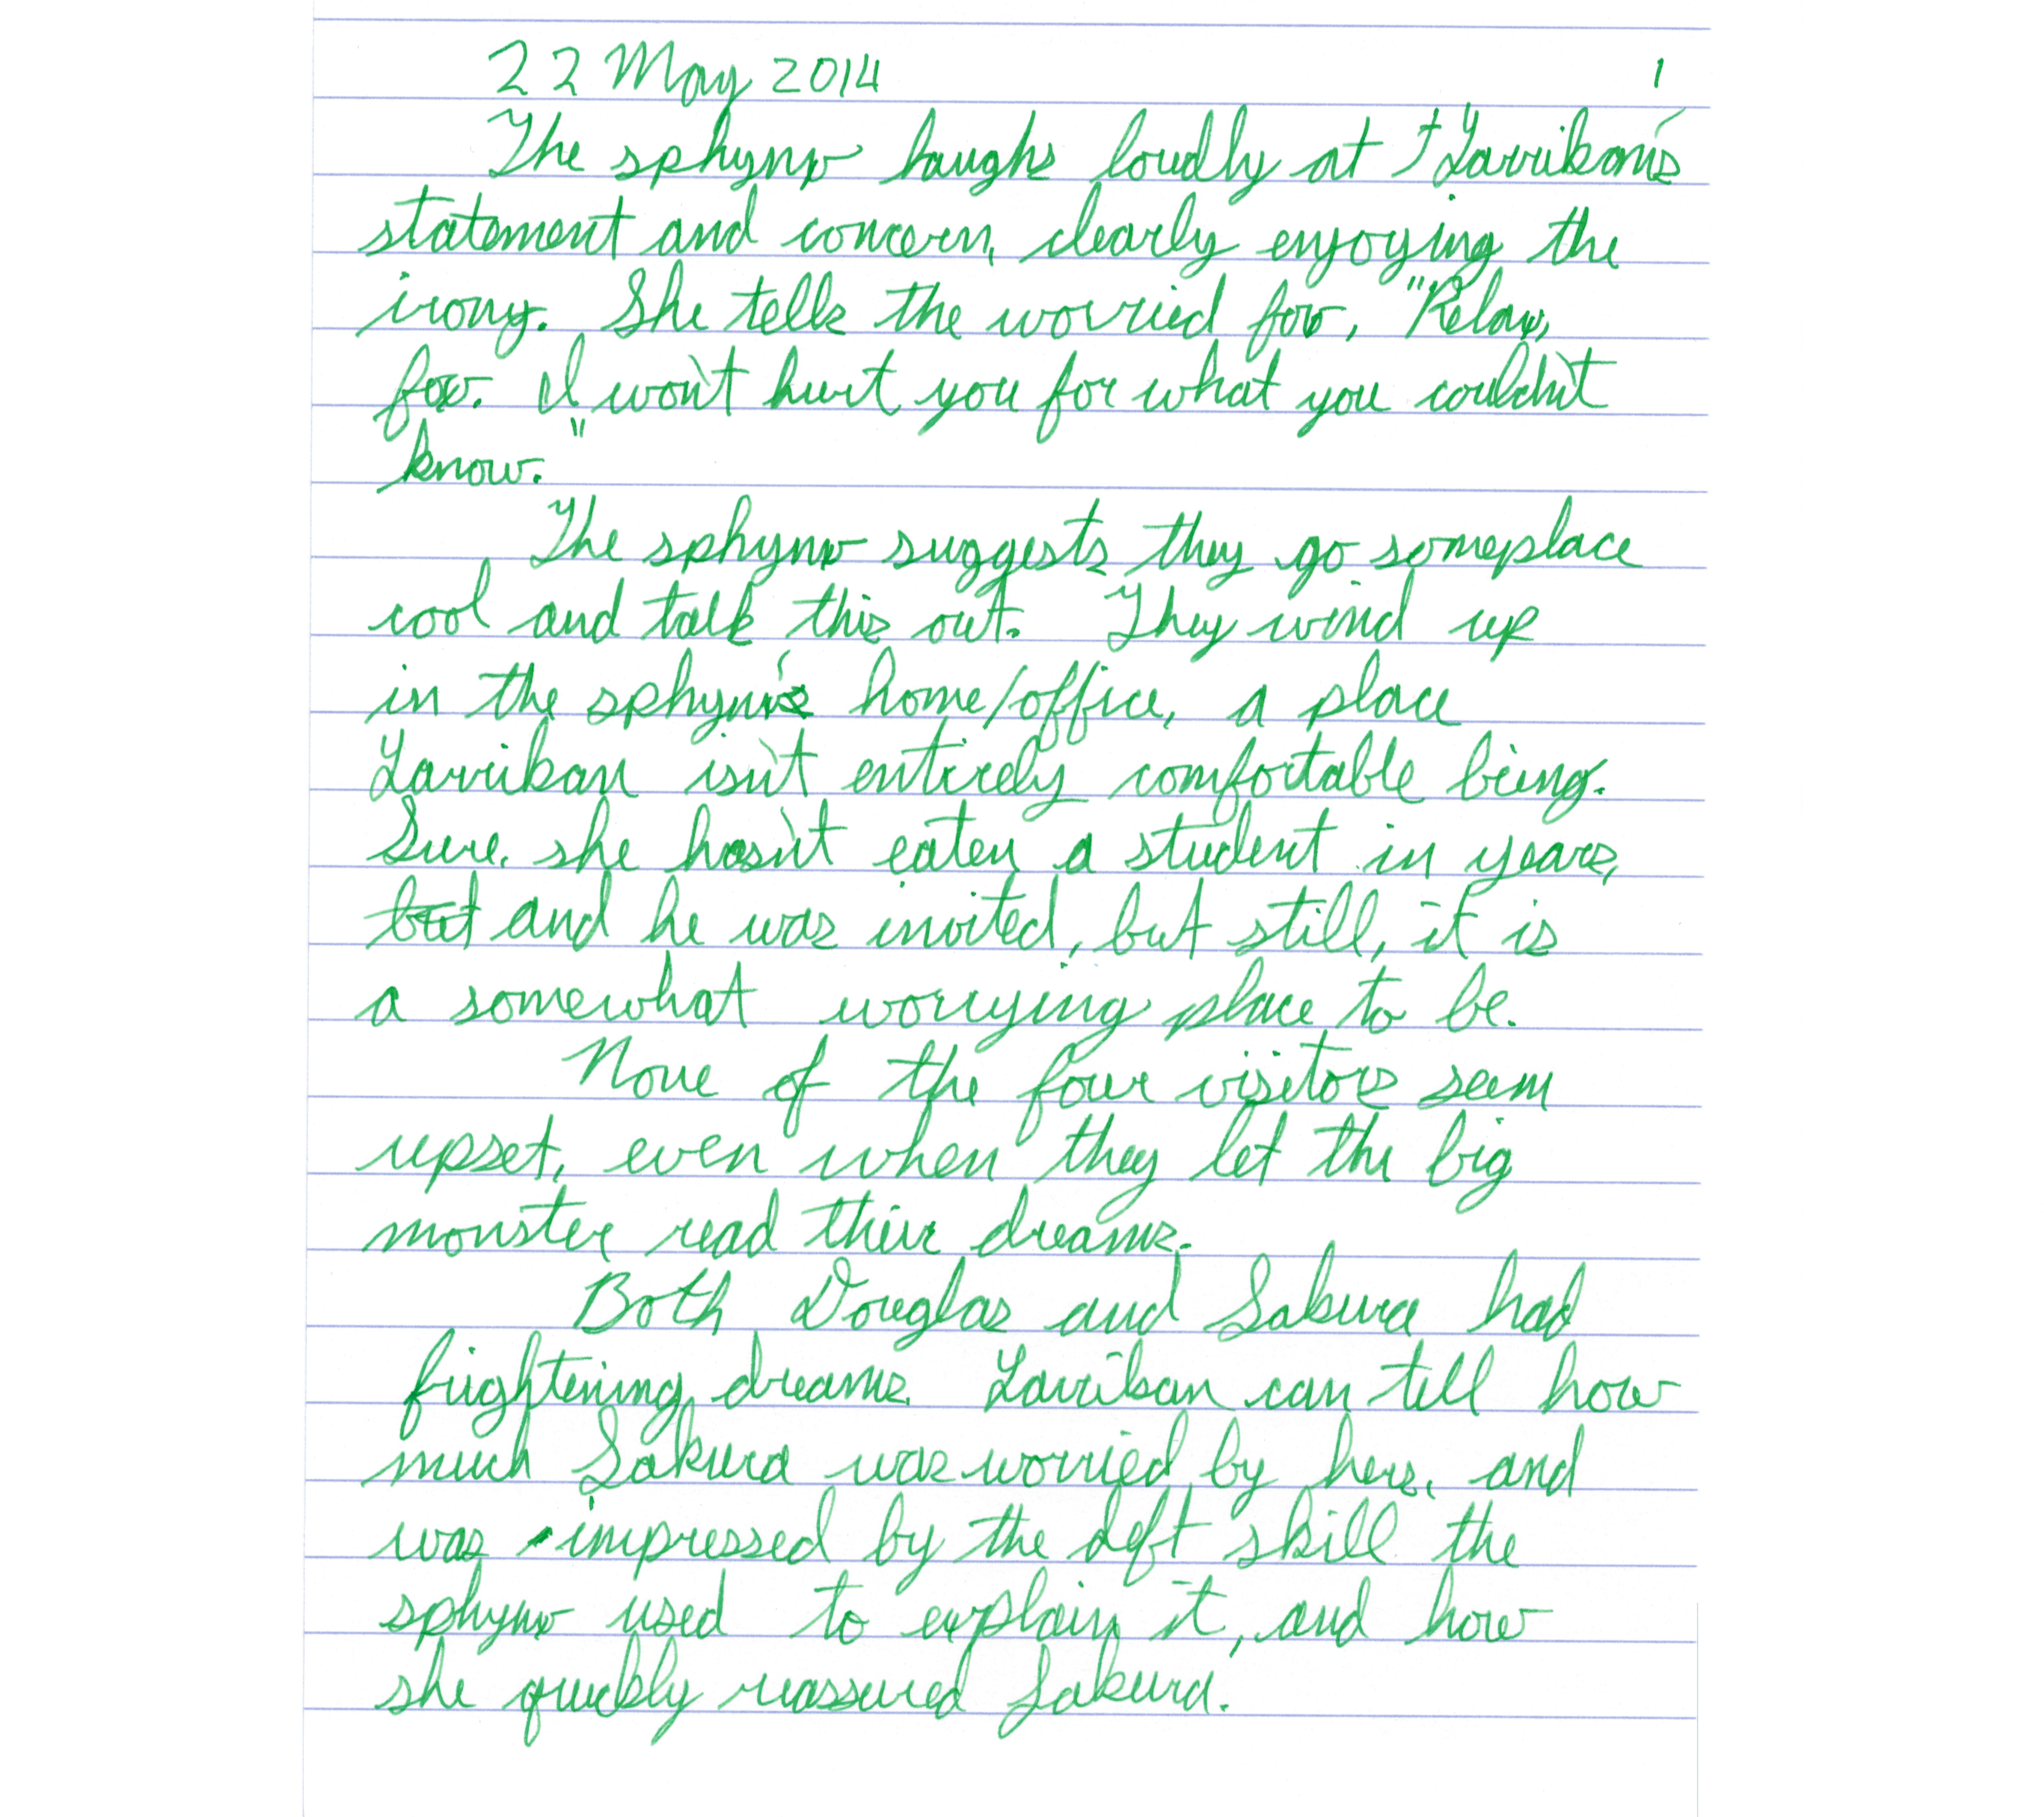 22 May 2014 1
The sphynx laughs loudly at Larriban's
statement and concern, clearly enjoying the
irony. She tells the worried fox, "Relax,
fox. I won't hurt you for what you couldn't
know."
The sphynx suggests they go someplace
cool and talk this out. They wind up
in the sphynx's home/office, a place
Larriban isn't entirely comfortable being.
Sure, she hasn't eaten a student in years,
but and he was invited, but still, it is
a somewhat worrying place to be.
None of the four visitors seem
upset, even when they let the big
monster read their dreams.
Both Douglas and Sakura had
frightening dreams. Larriban can tell how
much Sakura was worried by hers, and
was impressed by the deft skill the
sphynx used to explain it, and how
she quickly reassured Sakura.